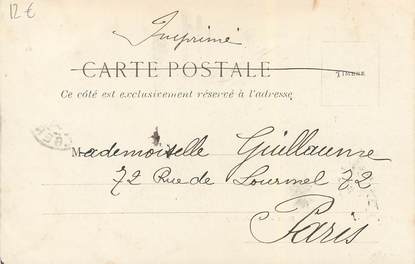 12 €
Imprimé
CARTE POSTALE
TIMBRE
Ce côté est exclusivement réservé à l'adresse
Mademoiselle Guillaume
72 Rue de Lourmel 72
Paris